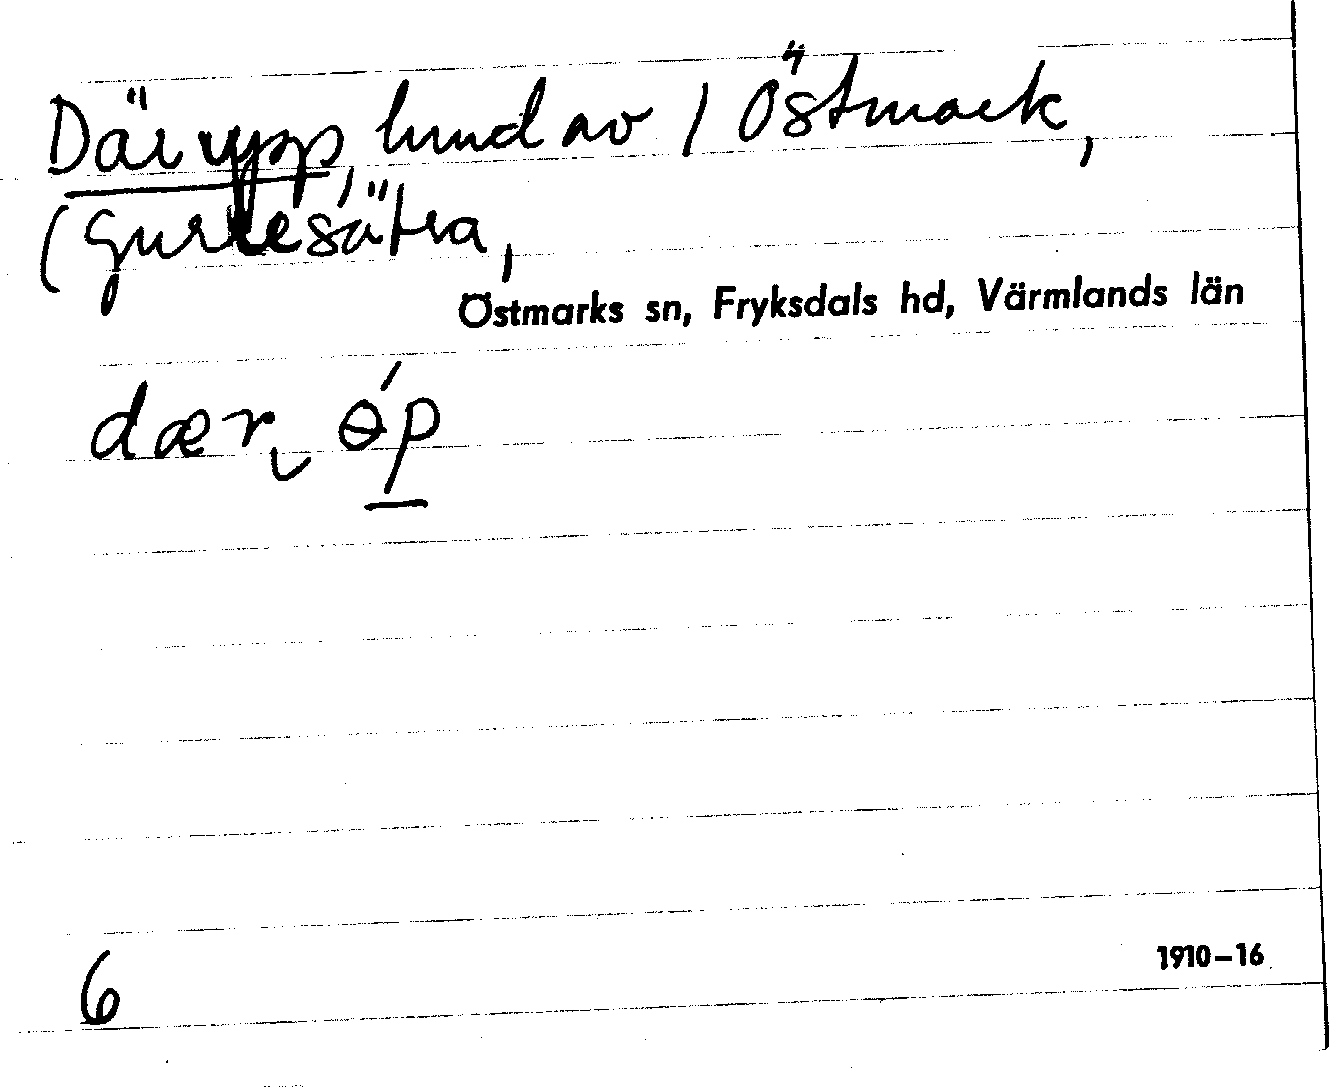 Därupp, hund av 1 Östmark,
(Gurlesätra,
Östmarks sn, Fryksdals hd, Värmlands län
dær‿ ɵ́p
6
1910–16